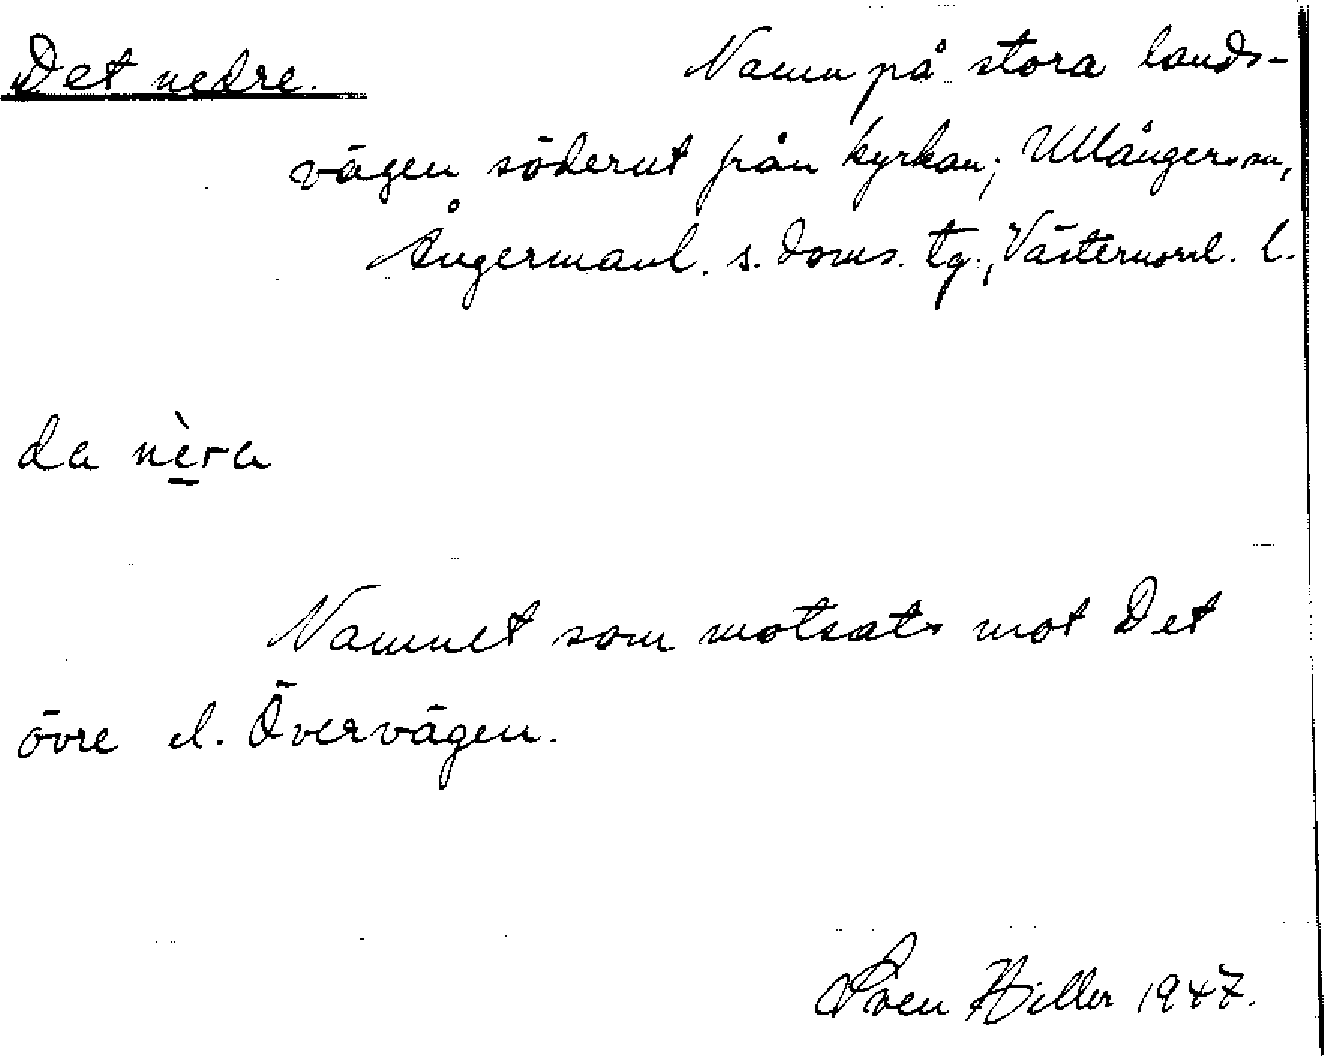 Det nedre. Namn på stora lands-
vägen söderut från kyrkan; Ullångers sn,
Ångermanl. s. doms. tg., Västernorrl. l.
da nèra
Namnet som motsats mot Det
övre el. Övervägen.
Sven Hiller 1947.